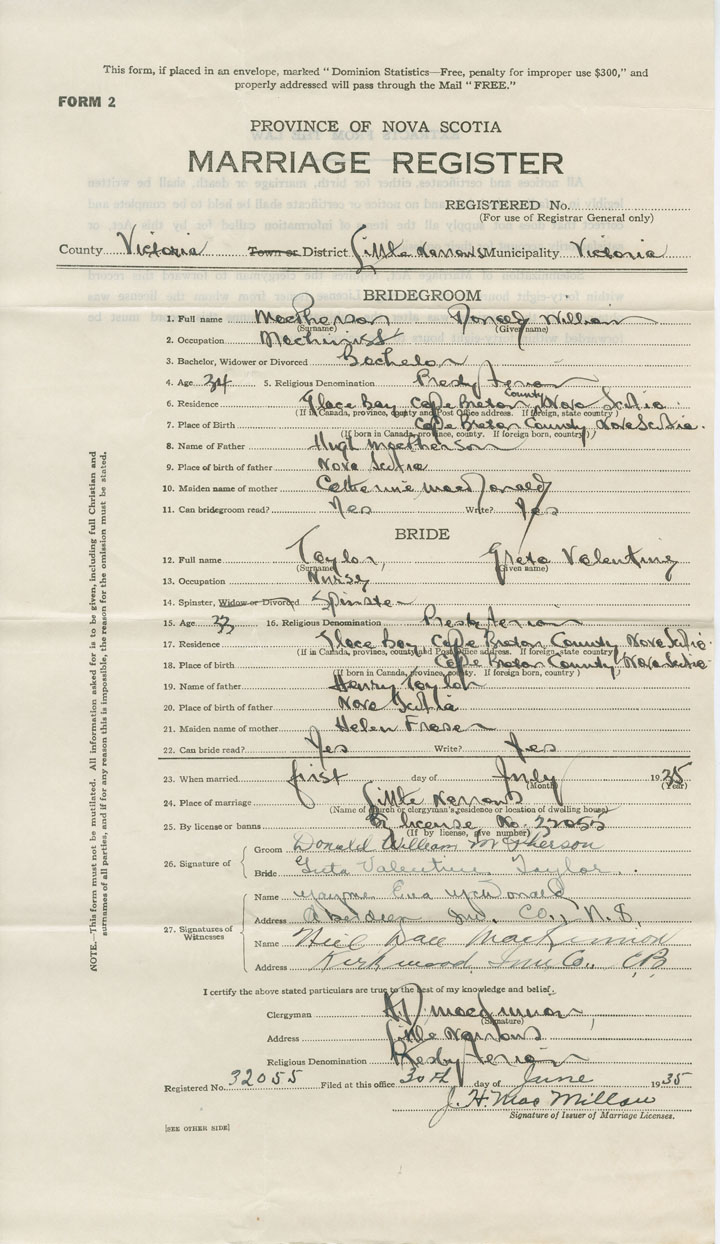 This form, if placed in an envelope, marked "Dominion Statistics—Free, penalty for improper use $300," and
properly addressed will pass through the Mail "FREE."
FORM 2
PROVINCE OF NOVA SCOTIA
MARRIAGE REGISTER
REGISTERED No.
(For use of Registrar General only)
County Victoria Town or District Little Narrows Municipality Victoria
BRIDEGROOM
1. Full name MacPherson Donald William
(Surname) (Given name)
2. Occupation Machinist
3. Bachelor, Widower or Divorced Bachelor
4. Age 34 5. Religious Denomination Presbyterian
County
6. Residence Glace Bay Cape Breton Nova Scotia
(If in Canada, province, county and Post Office address. If foreign, state country)
7. Place of Birth Cape Breton County Nova Scotia
(If born in Canada, province, county. If foreign born, country)
8. Name of Father Hugh MacPherson
9. Place of birth of father Nova Scotia
10. Maiden name of mother Catherine MacDonald
11. Can bridegroom read? Yes Write? Yes
BRIDE
12. Full name Taylor, Greta Valentine
(Surname) (Given name)
13. Occupation Nurse
14. Spinster, Widow or Divorced Spinster
15. Age 33 16. Religious Denomination Presbyterian
17. Residence Glace Bay Cape Breton County Nova Scotia
(If in Canada, province, county and Post Office address. If foreign, state country)
18. Place of birth Cape Breton County Nova Scotia
(If born in Canada, province, county. If foreign born, country)
19. Name of father Henry Taylor
20. Place of birth of father Nova Scotia
21. Maiden name of mother Helen Fraser
22. Can bride read? Yes Write? Yes
23. When married first day of July 1935
(Month) (Year)
24. Place of marriage Little Narrows
(Name of church or clergyman's residence or location of dwelling house)
25. By license or banns By license No. 32055
(If by license, give number)
26. Signature of Groom Donald William McPherson
Bride Greta Valentine Taylor
27. Signatures of Witnesses
Name Eva McDonald
Address Aberdeen Inv. Co., N.S.
Name Neil MacKinnon
Address Kirkwood Inv. Co., C.B.
I certify the above stated particulars are true to the best of my knowledge and belief.
Clergyman A.D. MacKinnon
(Signature)
Address Little Narrows
Religious Denomination Presbyterian
Registered No. 32055 Filed at this office 30th day of June 1935
J. H. MacMillan
Signature of Issuer of Marriage Licenses.
[SEE OTHER SIDE]
NOTE.—This form must not be mutilated. All information asked for is to be given, including full Christian and
surnames of all parties, and if for any reason this is impossible, the reason for the omission must be stated.